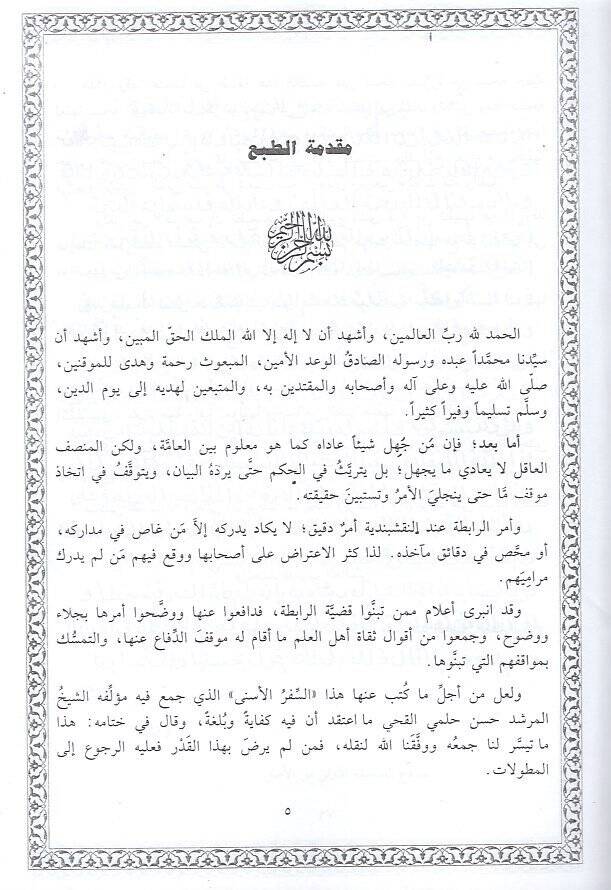 مقدمة الطبع
بسم الله الرحمن الرحيم
الحمد لله ربِّ العالمين، وأشهد أن لا إله إلا الله الملك الحقّ المبين، وأشهد أن
سيِّدنا محمَّداً عبده ورسوله الصادقُ الوعد الأمين، المبعوث رحمة وهدى للموقنين،
صلّى الله عليه وعلى آله وأصحابه والمقتدين به، والمتبعين لهديه إلى يوم الدين،
وسلَّم تسليماً وفيراً كثيراً.
أما بعد؛ فإن مَن جُهل شيئاً عاداه كما هو معلوم بين العامَّة، ولكن المنصف
العاقل لا يعادي ما يجهل؛ بل يتريَّثُ في الحكم حتَّى يردَهُ البيان، ويتوقَّفُ في اتخاذ
موقف مَّا حتى ينجليَ الأمرُ وتستبينَ حقيقته.
وأمر الرابطة عند النقشبندية أمرٌ دقيق؛ لا يكاد يدركه إلاَّ مَن غاص في مداركه،
أو محَّص في دقائق مآخذه. لذا كثر الاعتراض على أصحابها ووقع فيهم مَن لم يدرك
مراميَهم.
وقد انبرى أعلام ممن تبنَّوا قضيَّة الرابطة، فدافعوا عنها ووضَّحوا أمرها بجلاء
ووضوح، وجمعوا من أقوال ثقاة أهل العلم ما أقام له موقفَ الدِّفاع عنها، والتمسُّك
بمواقفهم التي تبنَّوها.
ولعل من أجلِّ ما كُتب عنها هذا «السِّفرُ الأسنى» الذي جمع فيه مؤلِّفه الشيخُ
المرشد حسن حلمي القحي ما اعتقد أن فيه كفايةً وبُلغةً، وقال في ختامه: هذا
ما تيسَّر لنا جمعُه ووفَّقَنا الله لنقله، فمن لم يرضَ بهذا القَدْر فعليه الرجوع إلى
المطولات.
٥